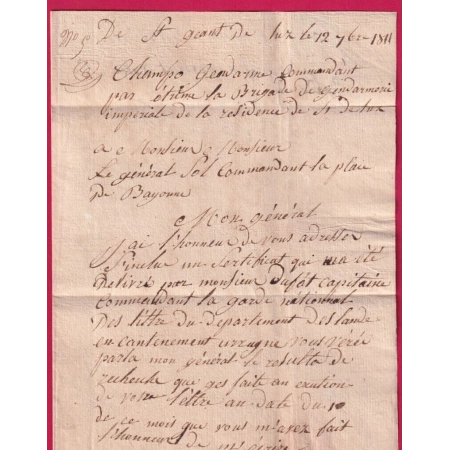 N° 5
De St geant de luz le 12 7bre 1811
Champo Gendarme Commandant
par interime la Brigade de Gendarmerie
imperiale de la residence de St de luz
a Monsieur Monsieur
Le général Sol Commandant la place
de Bayonne
Mon général
j'ai l'honneur de vous adresser
l'inclue un Certificat qui m'a été
delivré par monsieur Dufot Capitaine
commandant la garde national
des lettre du departement des lande
en cantonement urrugne vous veré
parla mon général le resulta de
recherche que ges fait an exution
de votre lettre au date du 10
de ce mois que vous m'avez fait
l'honneur de m'écrire